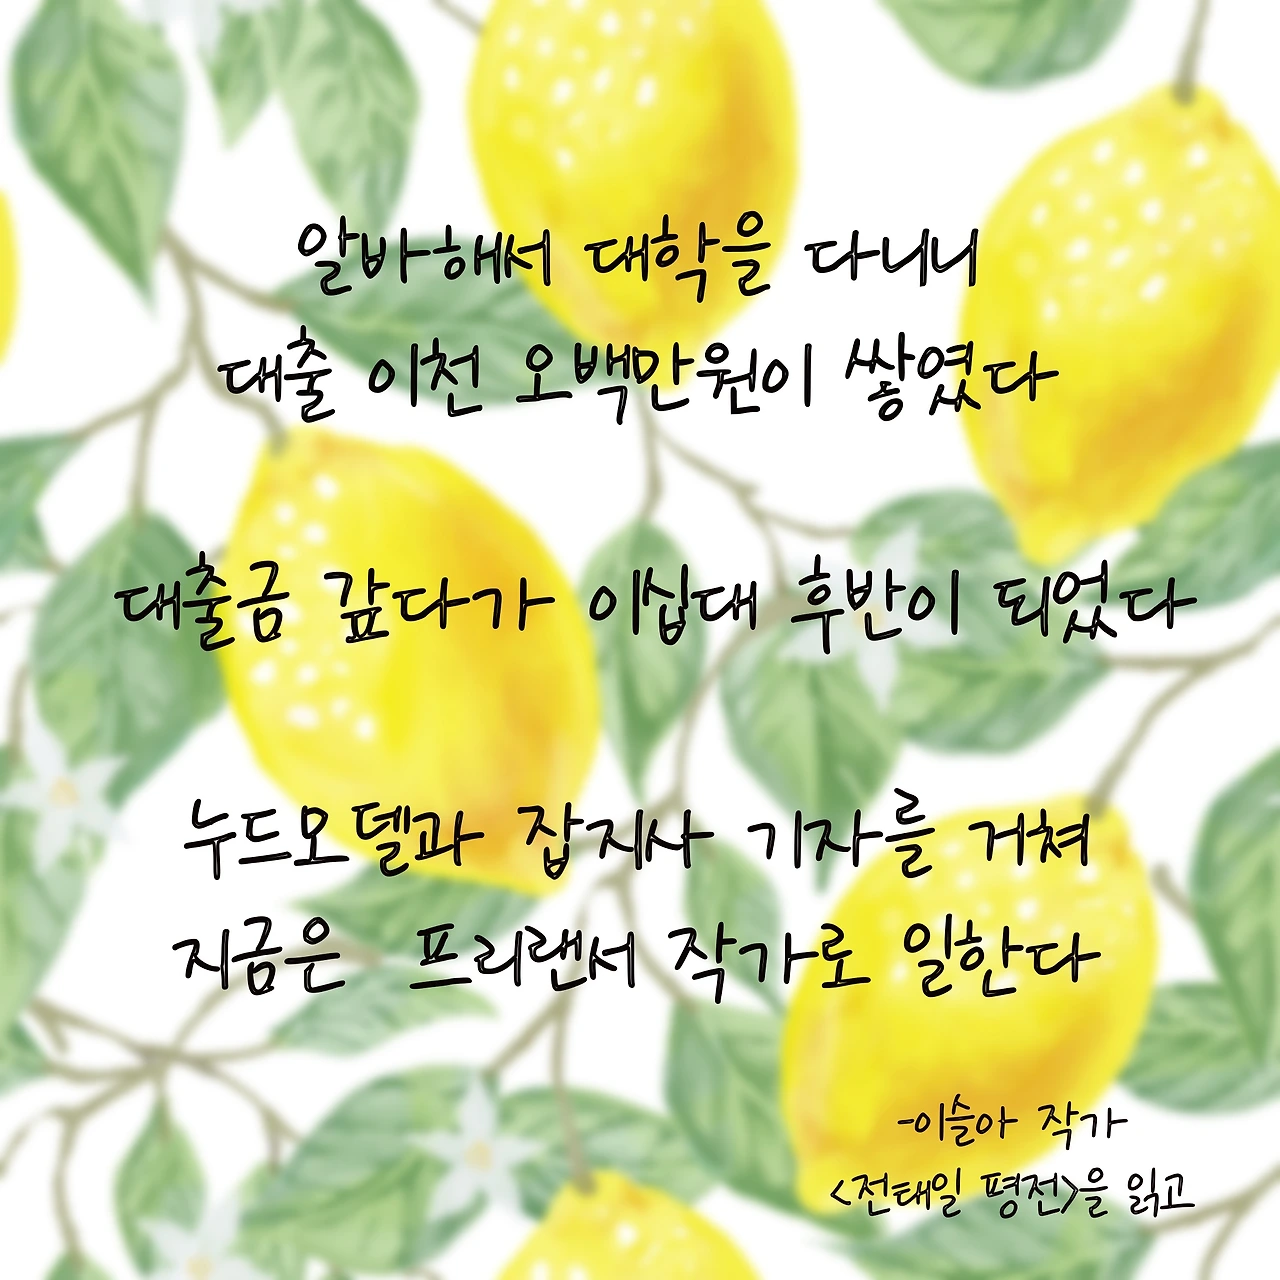 알바해서 대학을 다니니
대출 이천 오백만원이 쌓였다
대출금 갚다가 이십대 후반이 되었다
누드모델과 잡지사 기자를 거쳐
지금은 프리랜서 작가로 일한다
-이슬아 작가
<전태일 평전>을 읽고